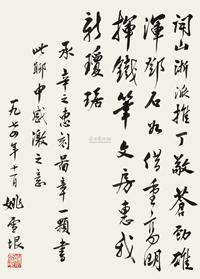 開山浙派推丁敬蒼勁雄
渾鄧石如借重高明
揮鐵筆文房惠我
新瓊琚
承幸之惠刻圖章一顆書
此聊申感激之意
一九七四年十一月姚雪垠